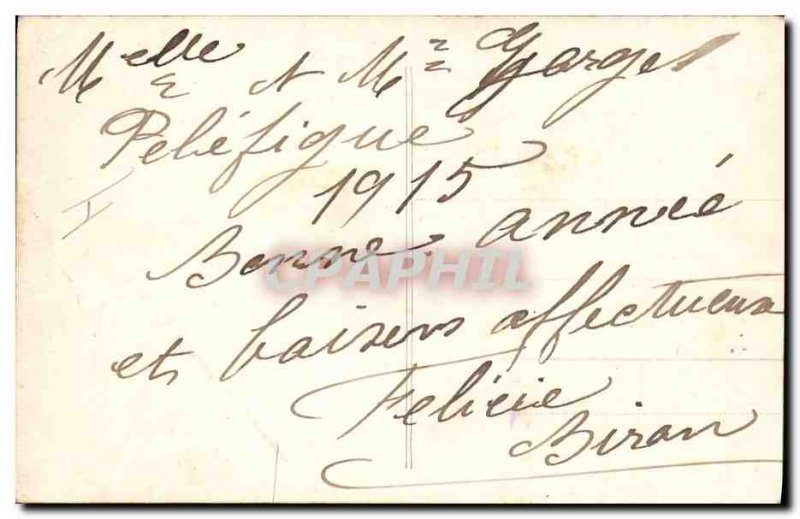 Melle et Mr Garges
Péléfigue
1915
Bonne année
et baisers affectueux
Felicie
Biran
CPAPHIL